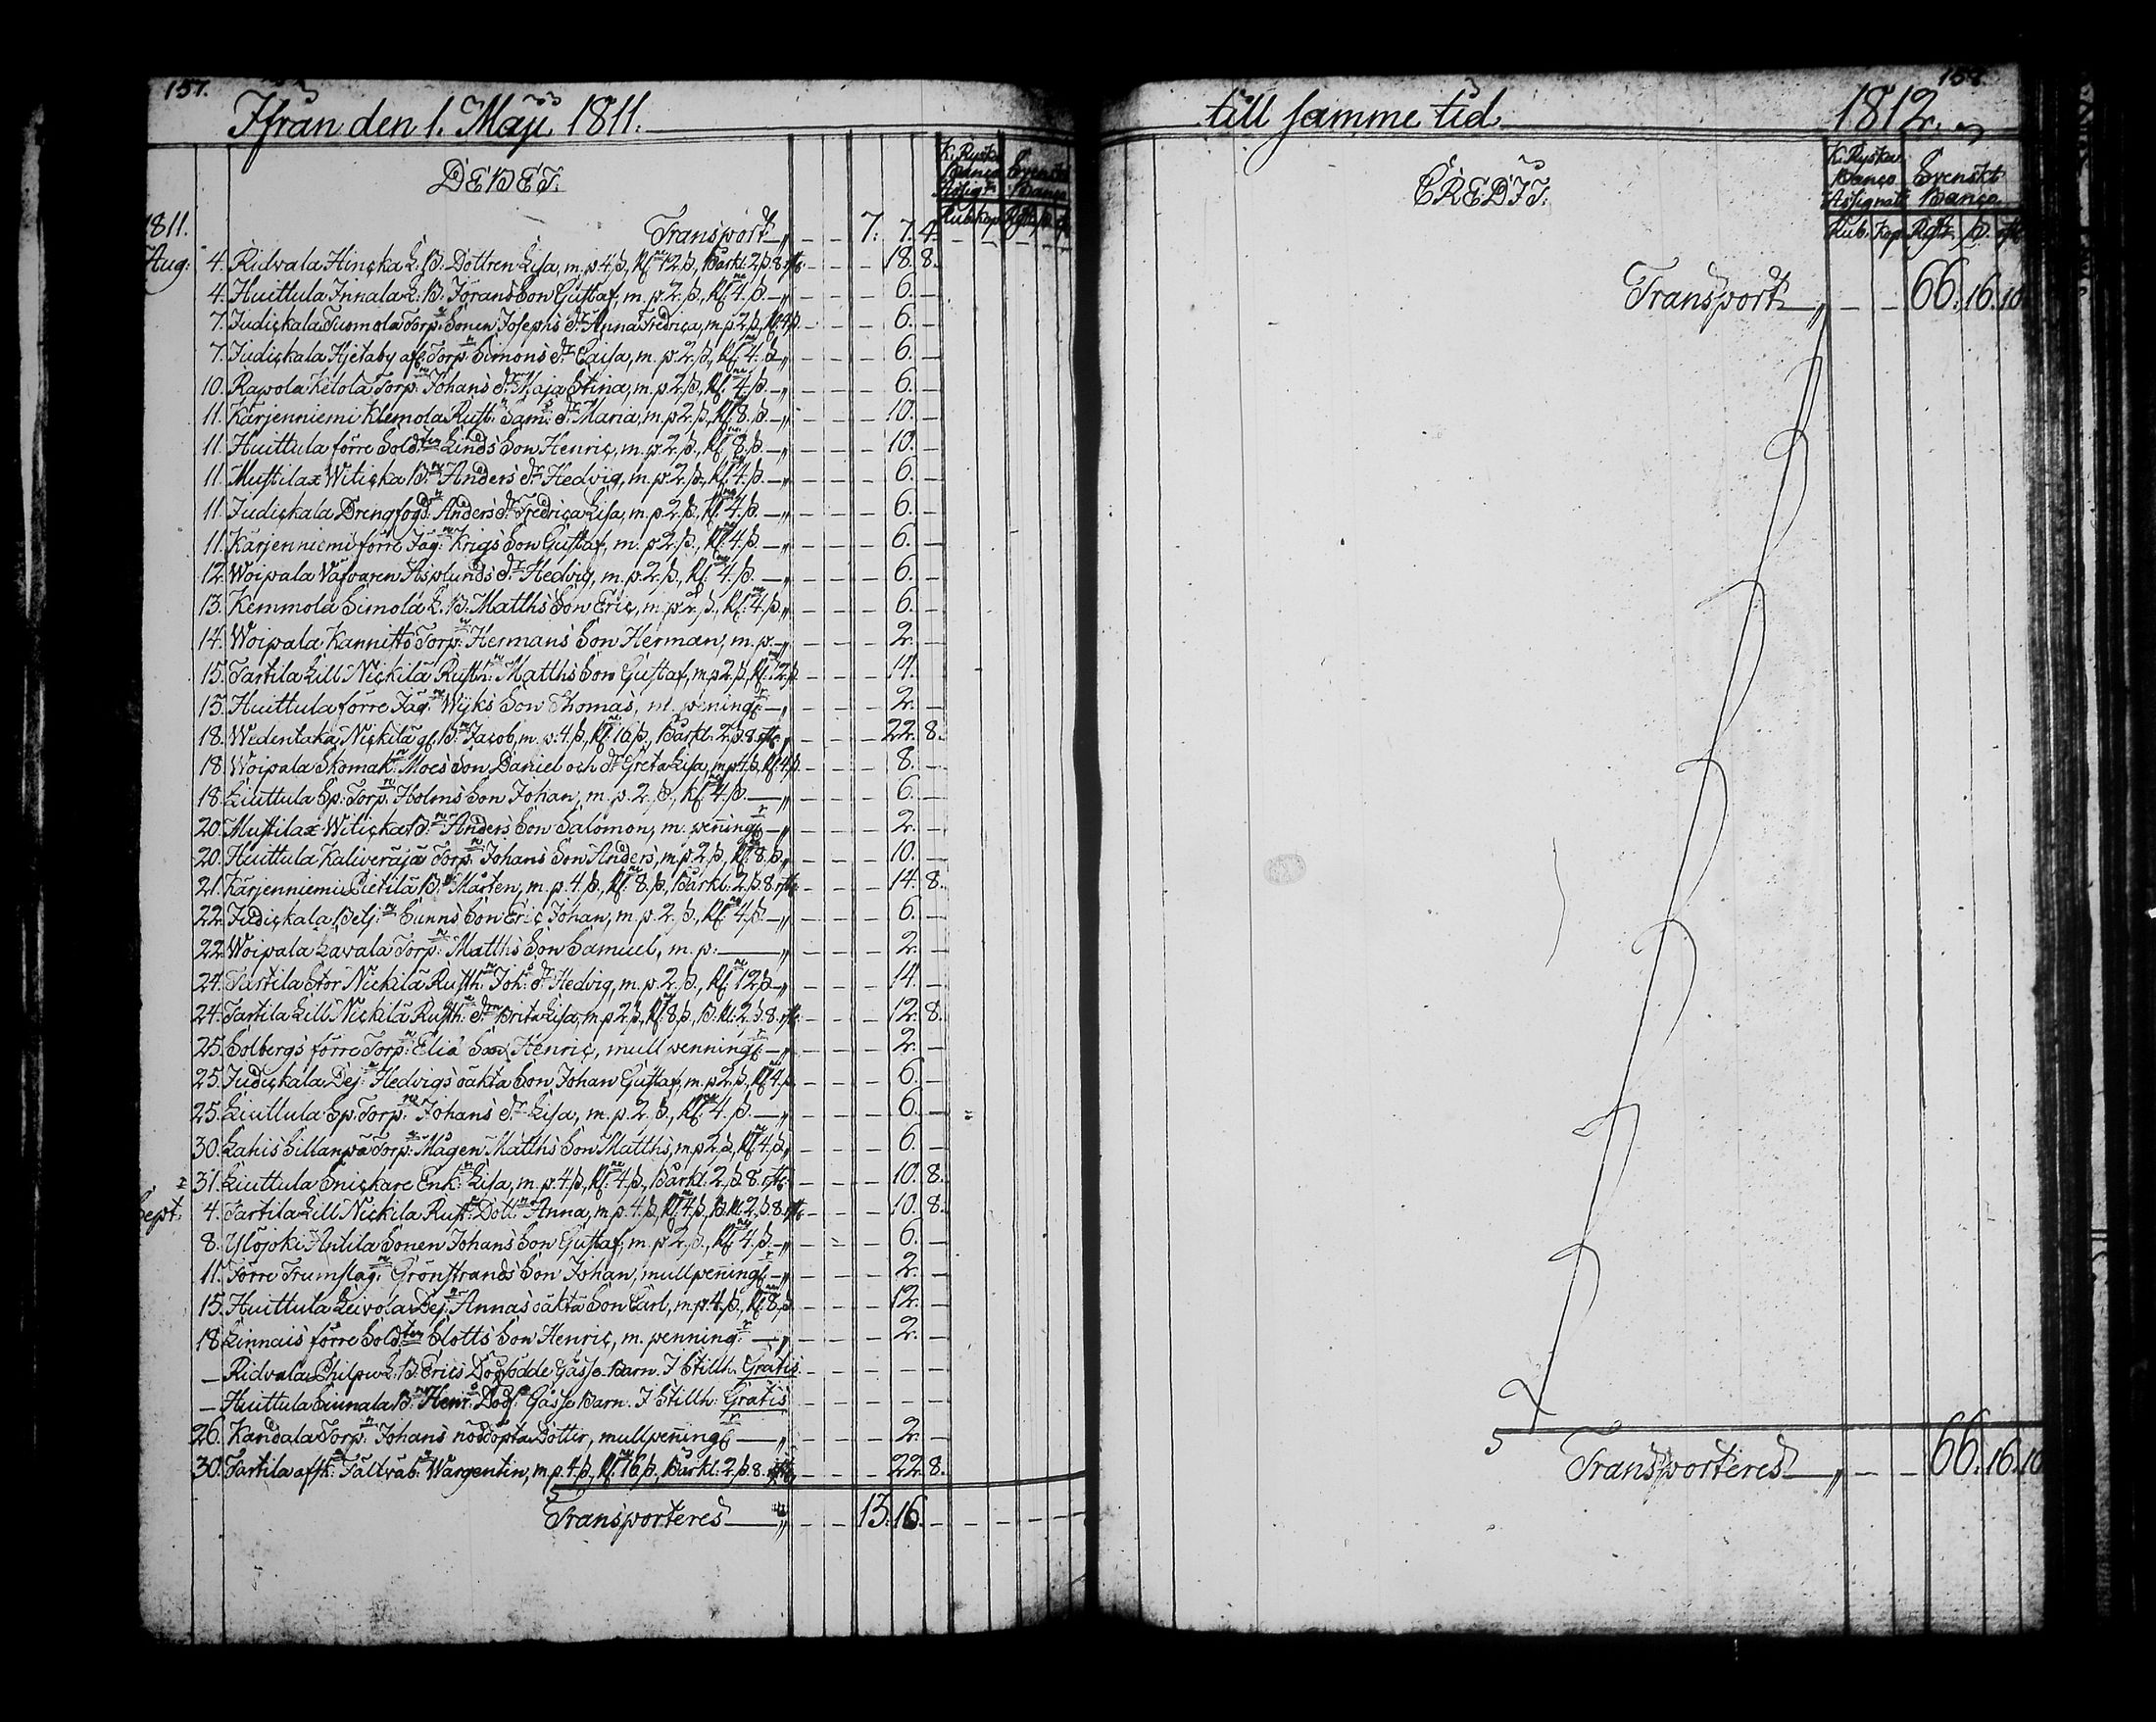 157.
Ifrån den 1. Maji 1811.
DEBET.
K. Ryska Banco Assign:
Svenskt Banco
Rub. kop. Rg:lr ß. rst.
1811. Transport 7. 7. 4.
Aug: 4. Ridvala Hincka L. B. Dottren Lisa, m. p 4. ß, Kl:ne 12. ß., Bårkl: 2. ß. 8. rst: 18. 8.
4. Huittula Innala L: B: Jörans Son Gustaf, m. p. 2. ß., Kl:ne 4. ß. 6.
7. Judickala Tuomola Torp: Sonen Josephs dr Anna Fredrica, m. p 2. ß, Kl: 4 ß. 6.
7. Judickala Hjetaby afs: Torp:n Simons dr Caisa, m. p. 2. ß., Kl:ne 4. ß. 6.
10. Rapola Ketola Torp:n Johans dr Maja Stina, m. p 2. ß., Kl:ne 4. ß. 6.
11. Kärjenniemi Klemola Rust:n Sam:s dr Maria, m. p 2. ß., Kl: 8. ß. 10.
11. Huittula förre Sold:ten Linds Son Henric, m. p. 2. ß., Kl:ne 8. ß. 10.
11. Mustilax Witicka B:n Anders dr Hedvig, m. p 2. ß., Kl: 4. ß. 6.
11. Judickala Drengfogd:n Anders dr Fredrica Lisa, m. p. 2. ß., Kl:ne 4. ß. 6.
11. Kärjenniemi förre Jäg:n Krigs Son Gustaf, m. p 2. ß., Kl:ne 4. ß. 6.
12. Woipala Väfvaren Asplunds dr Hedvig, m. p. 2. ß., Kl:ne 4. ß. 6.
13. Kemmola Simola L. B: Matths Son Eric, m. p 2. ß., Kl:ne 4. ß. 6.
14. Woipala Kannisto Torp:n Hermans Son Herman, m. p. 2.
15. Tartila Lill Nickilä Rusth:n Matths Son Gustaf, m p 2. ß, Kl:ne 12. ß 14.
15. Huittula förre Jäg:n Wijks Son Thomas, m. penning:r 2.
18. Wedentaka Nickilä gl. B:n Jacob, m. p. 4. ß, Kl:ne 16 ß., Bårkl: 2. ß. 8. rst: 22. 8.
18. Woipala Skomak:n Moes Son Daniel och dr Greta Lisa, m p 4. ß, Kl: 4 ß. 8.
18. Liuttula Sp: Torp:n Holms Son Johan, m. p. 2. ß., Kl:ne 4. ß. 6.
20. Mustilax Witicka B:n Anders Son Salomon, m. pening:r 2.
20. Huittula Kaliveräjä Torp:n Johans Son Anders, m. p. 2. ß, Kl:ne 8. ß. 10.
21. Kärjenniemi Pietilä B:n Mårten, m. p. 4. ß., Kl:ne 8. ß., Bårkl: 2. ß. 8. rst: 14. 8.
22. Judickala Betj:n Sunns Son Eric Johan, m. p. 2. ß., Kl:ne 4. ß. 6.
22. Woipala Lavala Torp:n Matths Son Samuel, m. p: 2.
24. Tartila Stor Nickilä Rusth:n Joh:s dr Hedvig, m. p. 2. ß., Kl:ne 12 ß 14.
24. Tartila Lill Nickilä Rusth:n dr Brita Lisa, m p 2. ß, Kl: 8 ß, B. kl: 2. ß 8. rst: 12. 8.
25. Solbergs förre Torp:n Eliæ Son Henric, mull penning:r 2.
25. Judickala Dej:n Hedvigs oäkta Son Johan Gustaf, m. p 2. ß, Kl: 4. ß. 6.
25. Liuttula Sp. Torp:n Johans dr Lisa, m. p. 2. ß., Kl:ne 4. ß. 6.
30. Lahis Sillanpä Torp:n Mågen Matths Son Matths, m p 2 ß, Kl: 4. ß. 6.
31. Liuttula Snickare Enk:n Lisa, m. p. 4 ß, Kl:ne 4 ß., Bårkl. 2. ß 8. rst: 10. 8.
Sept: 4. Tartila Lill Nickilä Rust:n Dott:n Anna, m p. 4. ß, Kl:ne 4 ß., B. kl 2. ß 8. rst 10. 8.
8. Ylojoki Antila Sonen Johans Son Gustaf, m. p 2. ß., Kl:ne 4. ß. 6.
11. Förre Trumslag:n Grönstrands Son Johan, mullpening:r 2.
15. Huittula Leivola Dej:n Annas oäkta Son Carl, m. p 4. ß., Kl:ne 8. ß. 12.
18. Linnais förre Sold:ten Slotts Son Henric, m. penning:r 2.
— Ridvala Philpu L. B. Erics Dödfödde Gåsse Barn. I Stillh: Gratis.
— Huittula Sinnala B:n Henr:s Dödf: Gåsse Barn. I Stillh: Gratis
26. Kandala Torp:n Johans nöddöpta Dotter, mullpening:r 2.
30. Tartila afsk: Fältväb: Wargentin, m. p. 4 ß., Kl:ne 16 ß., Bårkl: 2. ß. 8. rst 22. 8.
Transporteres 13. 16.
158.
till samme tid 1812.
CREDIT:
K. Ryska Banco Assignat:
Svenskt Banco
Rub. Kop. Rg:lr ß. rst
Transport 66. 16. 10
Transporteres 66. 16. 10